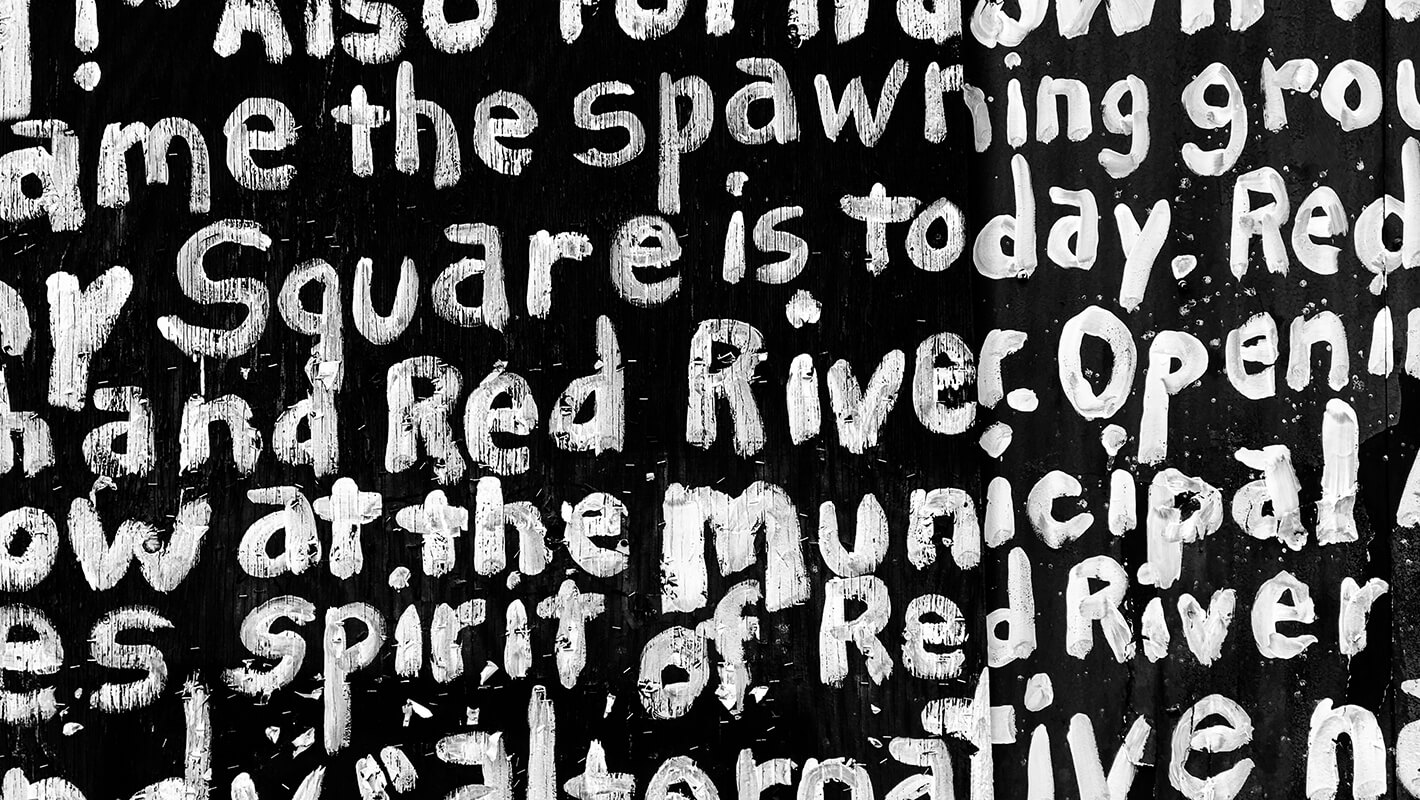 ! Also forwa own
ame the spawning grou
y Square is today. Red
h and Red River. Openin
ow at the Municipal A
es spirit of Red River
ndy "alternative n